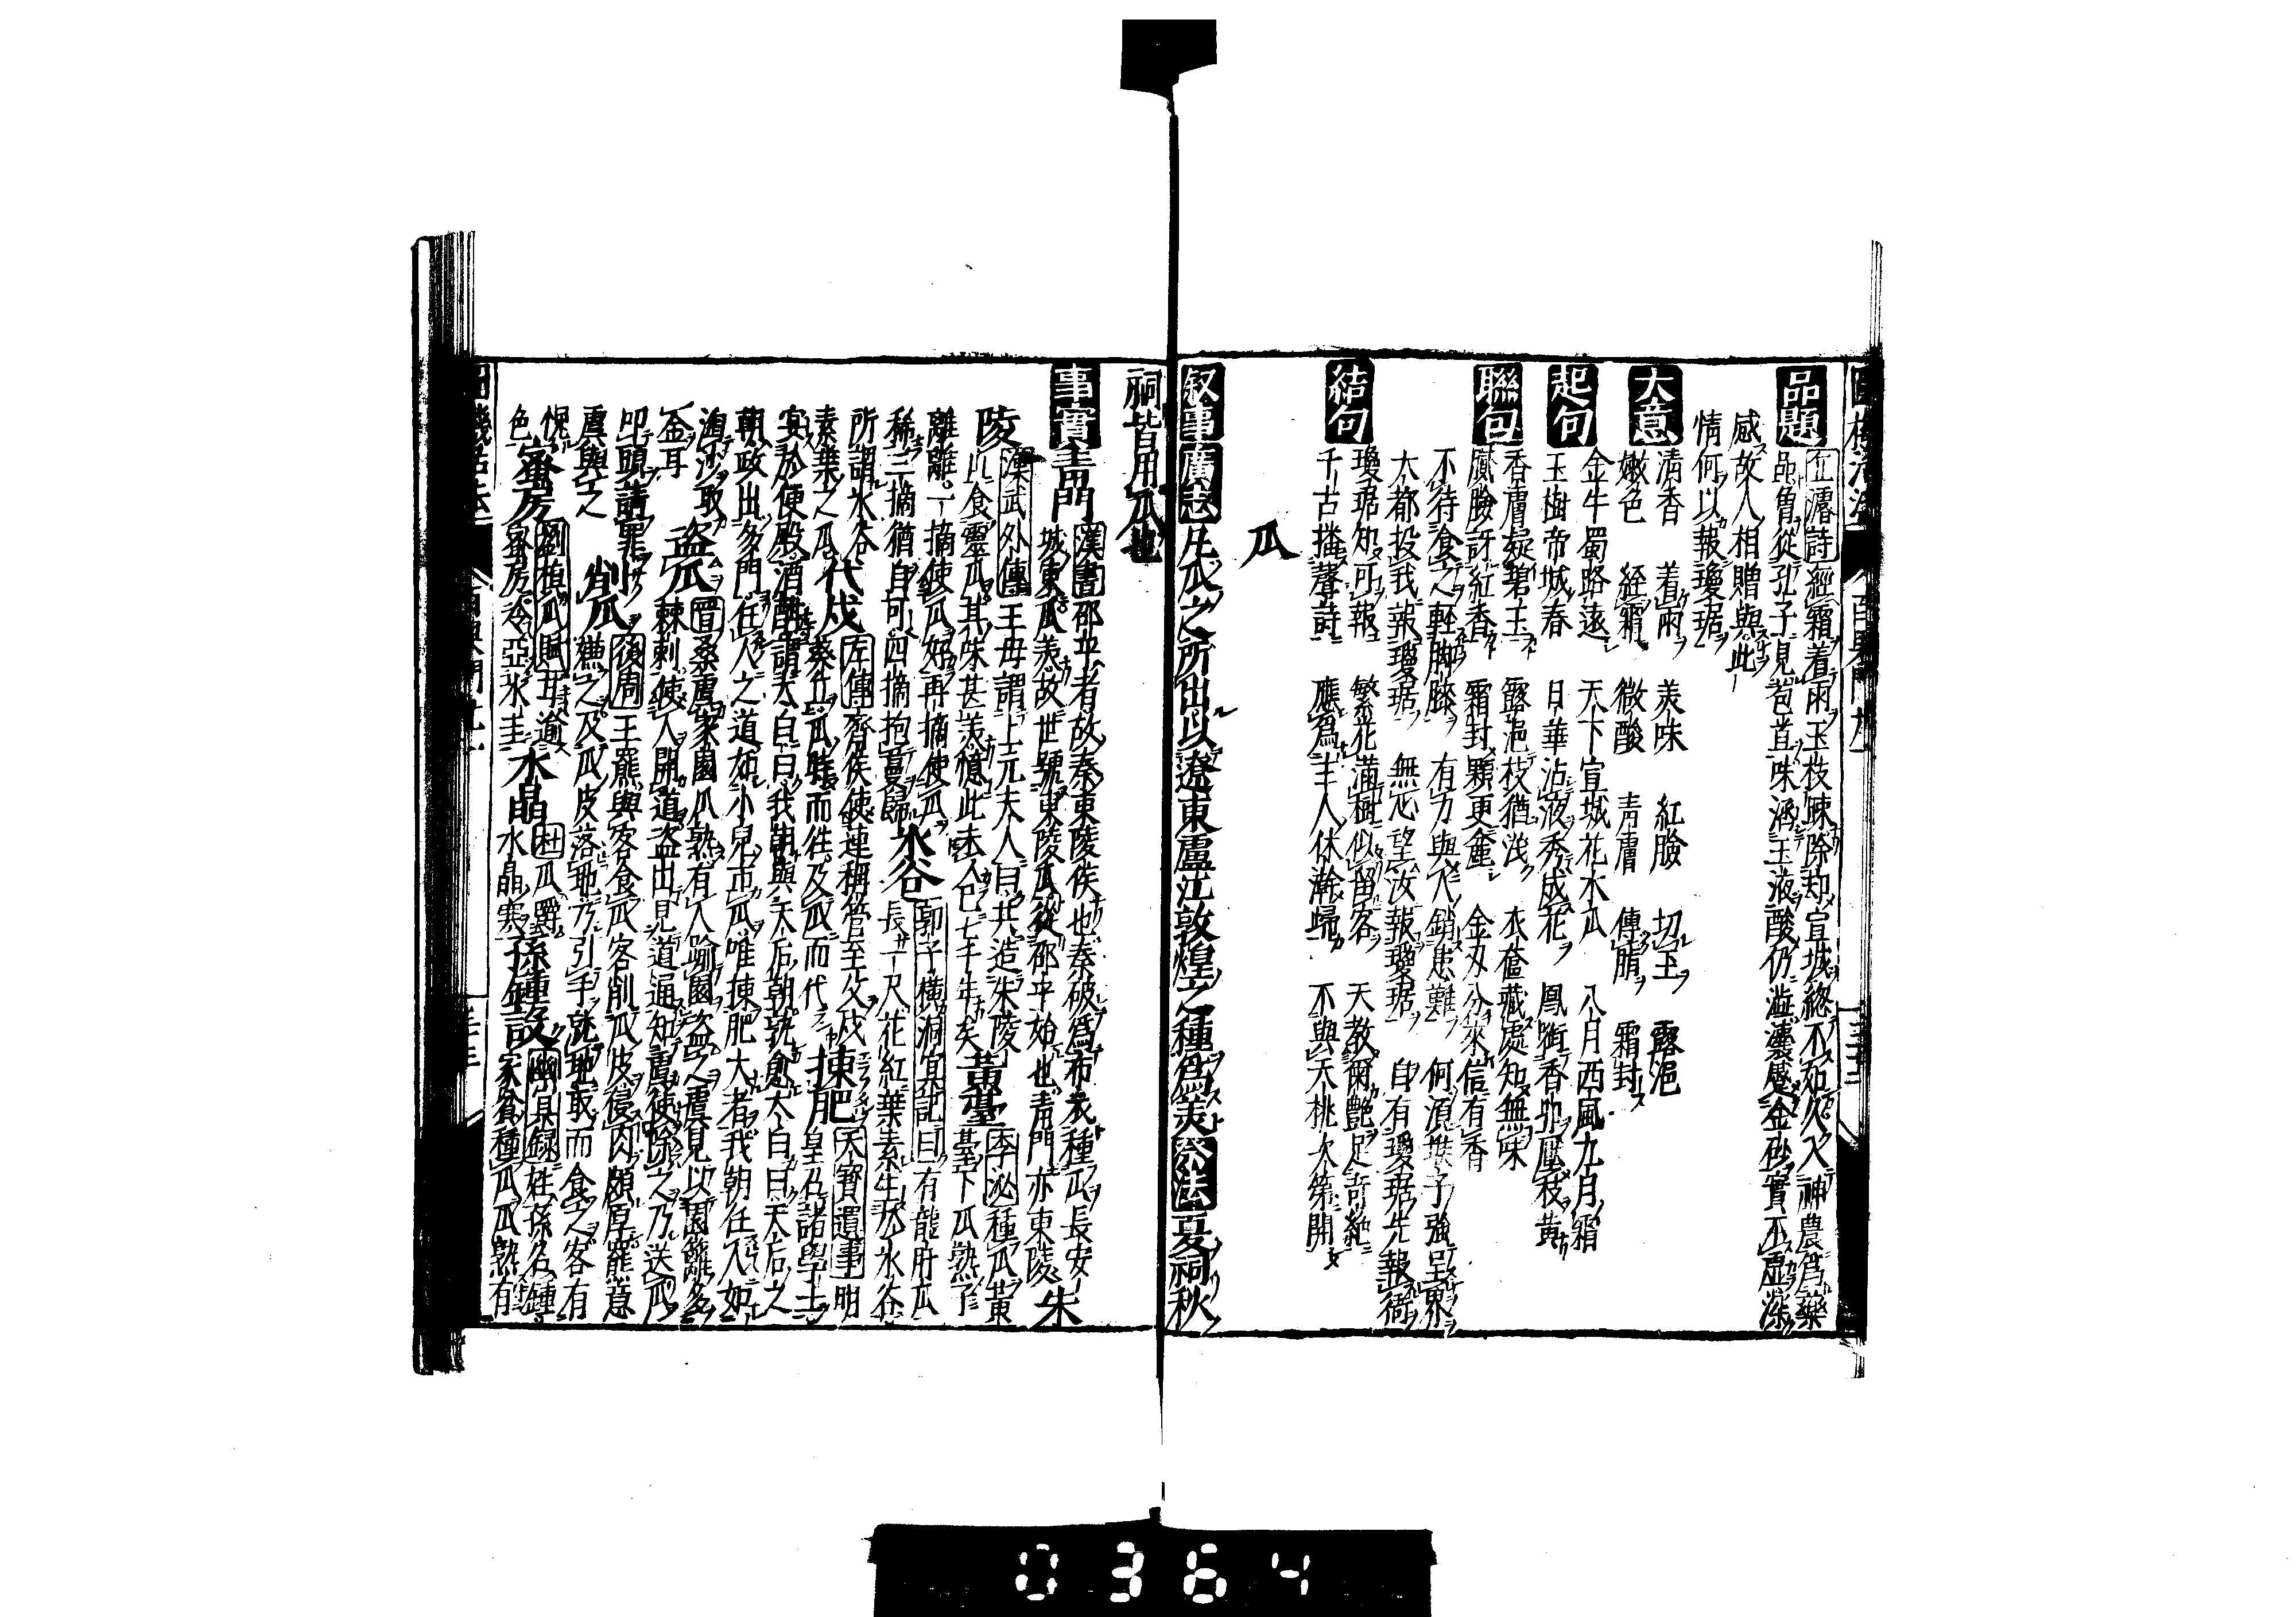 品題 丘濬詩經霜着雨玉枝踈除却宣城總不如久入神農爲藥
品曾從孔子見苞苴味涵玉液酸仍澁囊蹙金砂實不虛深
感故人相贈與此
情何以報瓊琚
大意 清香 着雨 美味 紅臉 切玉 露浥
嫩色 経霜 微酸 青膚 傳脂 霜封
起句 金牛蜀路遠 天下宣城花木瓜 八月西風九月霜
玉樹帝城春 日華沾液秀成花 鳳銜香卵壓枝黄
聯句 香膚凝碧玉 露浥枝猶浅 衣奩藏處知無味
膩臉訝紅香 霜封顆更垂 金刄分來信有香
不待食之輕脚膝 有力與人銷患難 何須
太都投我報瓊琚 無心望汝報瓊琚 自有瓊琚先報
結句 瓊琚知可報 繁花滿樹似留客 天教爾艶足奇絶
千古播聲詩 應爲主人休瀚歸 不與夭桃次第開
瓜
叙事 廣志 生瓜之所出以遼東盧江敦煌之種爲美 祭法 夏祠秋
祠皆用瓜也
事實 青門 漢書 邵平者故秦東陵侯也秦破爲布衣種瓜長安
城東瓜美故世號東陵瓜從邵平始也青門亦東陵 朱
陵 漢武外傳 王母謂上元夫人曰共造朱陵
以食靈瓜其味甚美憶此未久已七千年矣 黃臺 李泌 種瓜黃
臺下瓜熟子
離離一摘使瓜好再摘使瓜
稀三摘猶自可四摘抱蔓歸 水谷 郭子横洞冥記曰 有龍肝瓜
長一尺花紅葉素生於氷谷
所謂氷谷
素葉之瓜 代戍 左傳 齊侯使連稱管至父戍
葵丘瓜時而徃及瓜而代 揀肥 天寶遺事 明
皇召諸學士
宴於便殿酒酣謂太白曰我朝與天后朝孰愈太白曰天后之
朝政出多門任人之道如小兒市瓜唯揀肥大者我朝任人如
淘沙取
金耳 盗瓜 晋 桑虞家園瓜熟有人踰園盗之虞見以園籬多
棘刺使人開道盗出見道通知虞使除之乃送瓜
叩頭請罪
虞與之 削瓜 後周 王羆與客食瓜客削瓜皮侵肉頗厚羆意
嫌之及瓜皮落地乃引手就地取而食之客有
愧
色 蜜房 劉楨瓜賦 甘逾
蜜房冷亞氷圭 水晶 杜 瓜嚼
水晶寒 孫鍾設 幽冥録 姓孫名鍾
家貧種瓜瓜熟有
0364